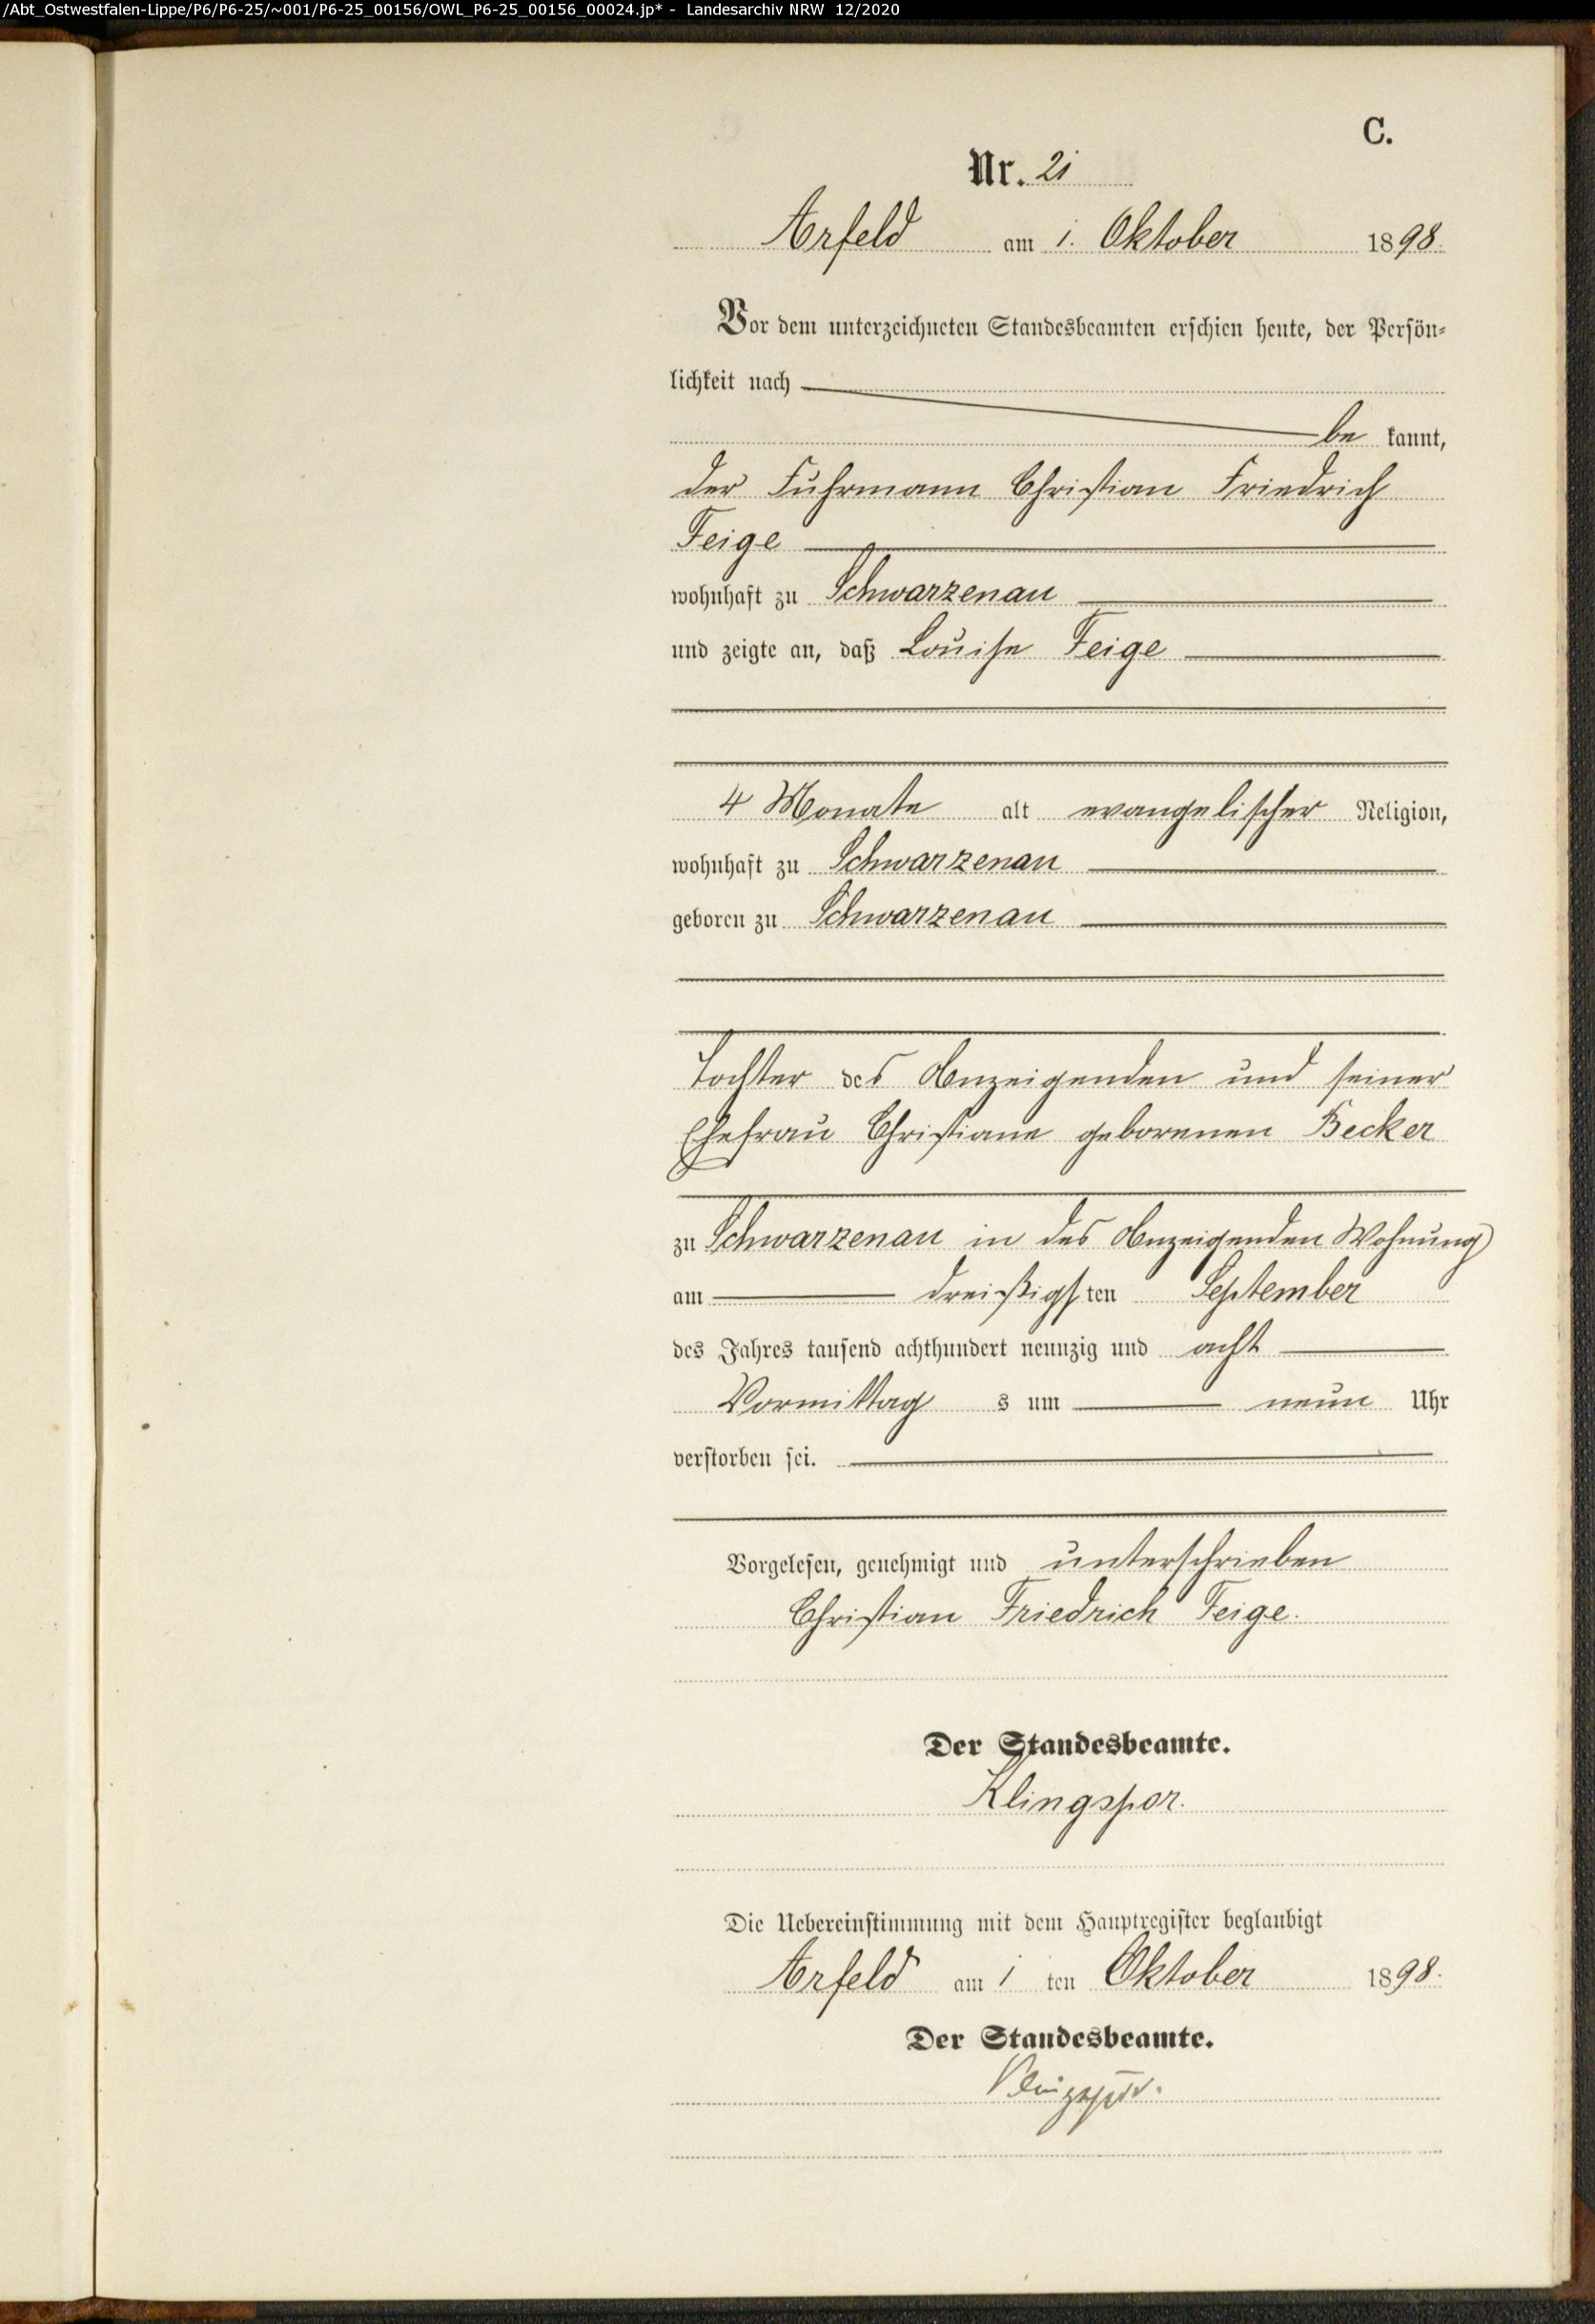 /Abt_Ostwestfalen-Lippe/P6/P6-25/~001/P6-25_00156/OWL_P6-25_00156_00024.jp* - Landesarchiv NRW 12/2020
C.
Nr. 21
Arfeld am 1. Oktober 1898.
Vor dem unterzeichneten Standesbeamten erschien heute, der Persön-
lichkeit nach
be kannt,
der Fuhrmann Christian Friedrich
Feige
wohnhaft zu Schwarzenau
und zeigte an, daß Louise Feige
4 Monate alt evangelischer Religion,
wohnhaft zu Schwarzenau
geboren zu Schwarzenau
Tochter des Anzeigenden und seiner
Ehefrau Christiane geborenen Becker
zu Schwarzenau in des Anzeigenden Wohnung
am dreißigsten September
des Jahres tausend achthundert neunzig und acht
Vormittag s um neun Uhr
verstorben sei.
Vorgelesen, genehmigt und unterschrieben
Christian Friedrich Feige.
Der Standesbeamte.
Klingspor.
Die Uebereinstimmung mit dem Hauptregister beglaubigt
Arfeld am 1 ten Oktober 1898.
Der Standesbeamte.
Klingspor.